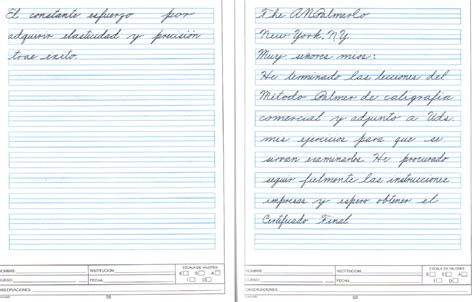 El constante esfuerzo por
adquirir elasticidad y precisión
trae éxito.
NOMBRE
INSTITUCION
ESCALA DE VALORES
CURSO
FECHA
OBSERVACIONES
The A.N. Palmer Co
New York, N.Y.
Muy señores mios:
He terminado las lecciones del
Método Palmer de caligrafia
comercial y adjunto a Uds.
mis ejercicios para que se
sirvan examinarlos. He procurado
seguir fielmente las instrucciones
impresas y espero obtener el
Certificado Final
NOMBRE
INSTITUCION
ESCALA DE VALORES
CURSO
FECHA
OBSERVACIONES